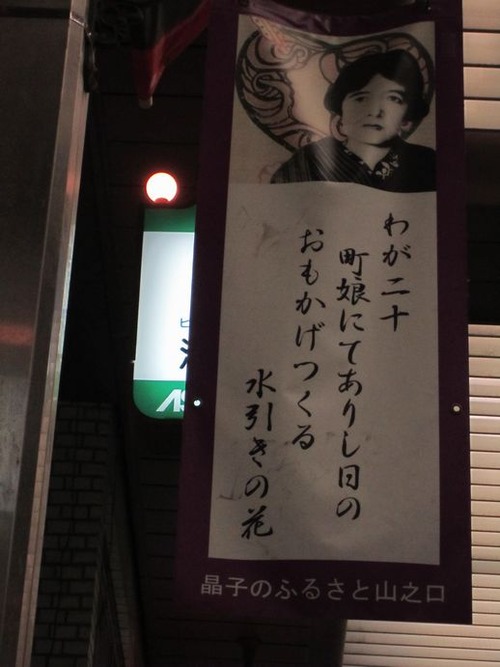 わが二十
町娘にてありし日の
おもかげつくる
水引きの花
晶子のふるさと山之口